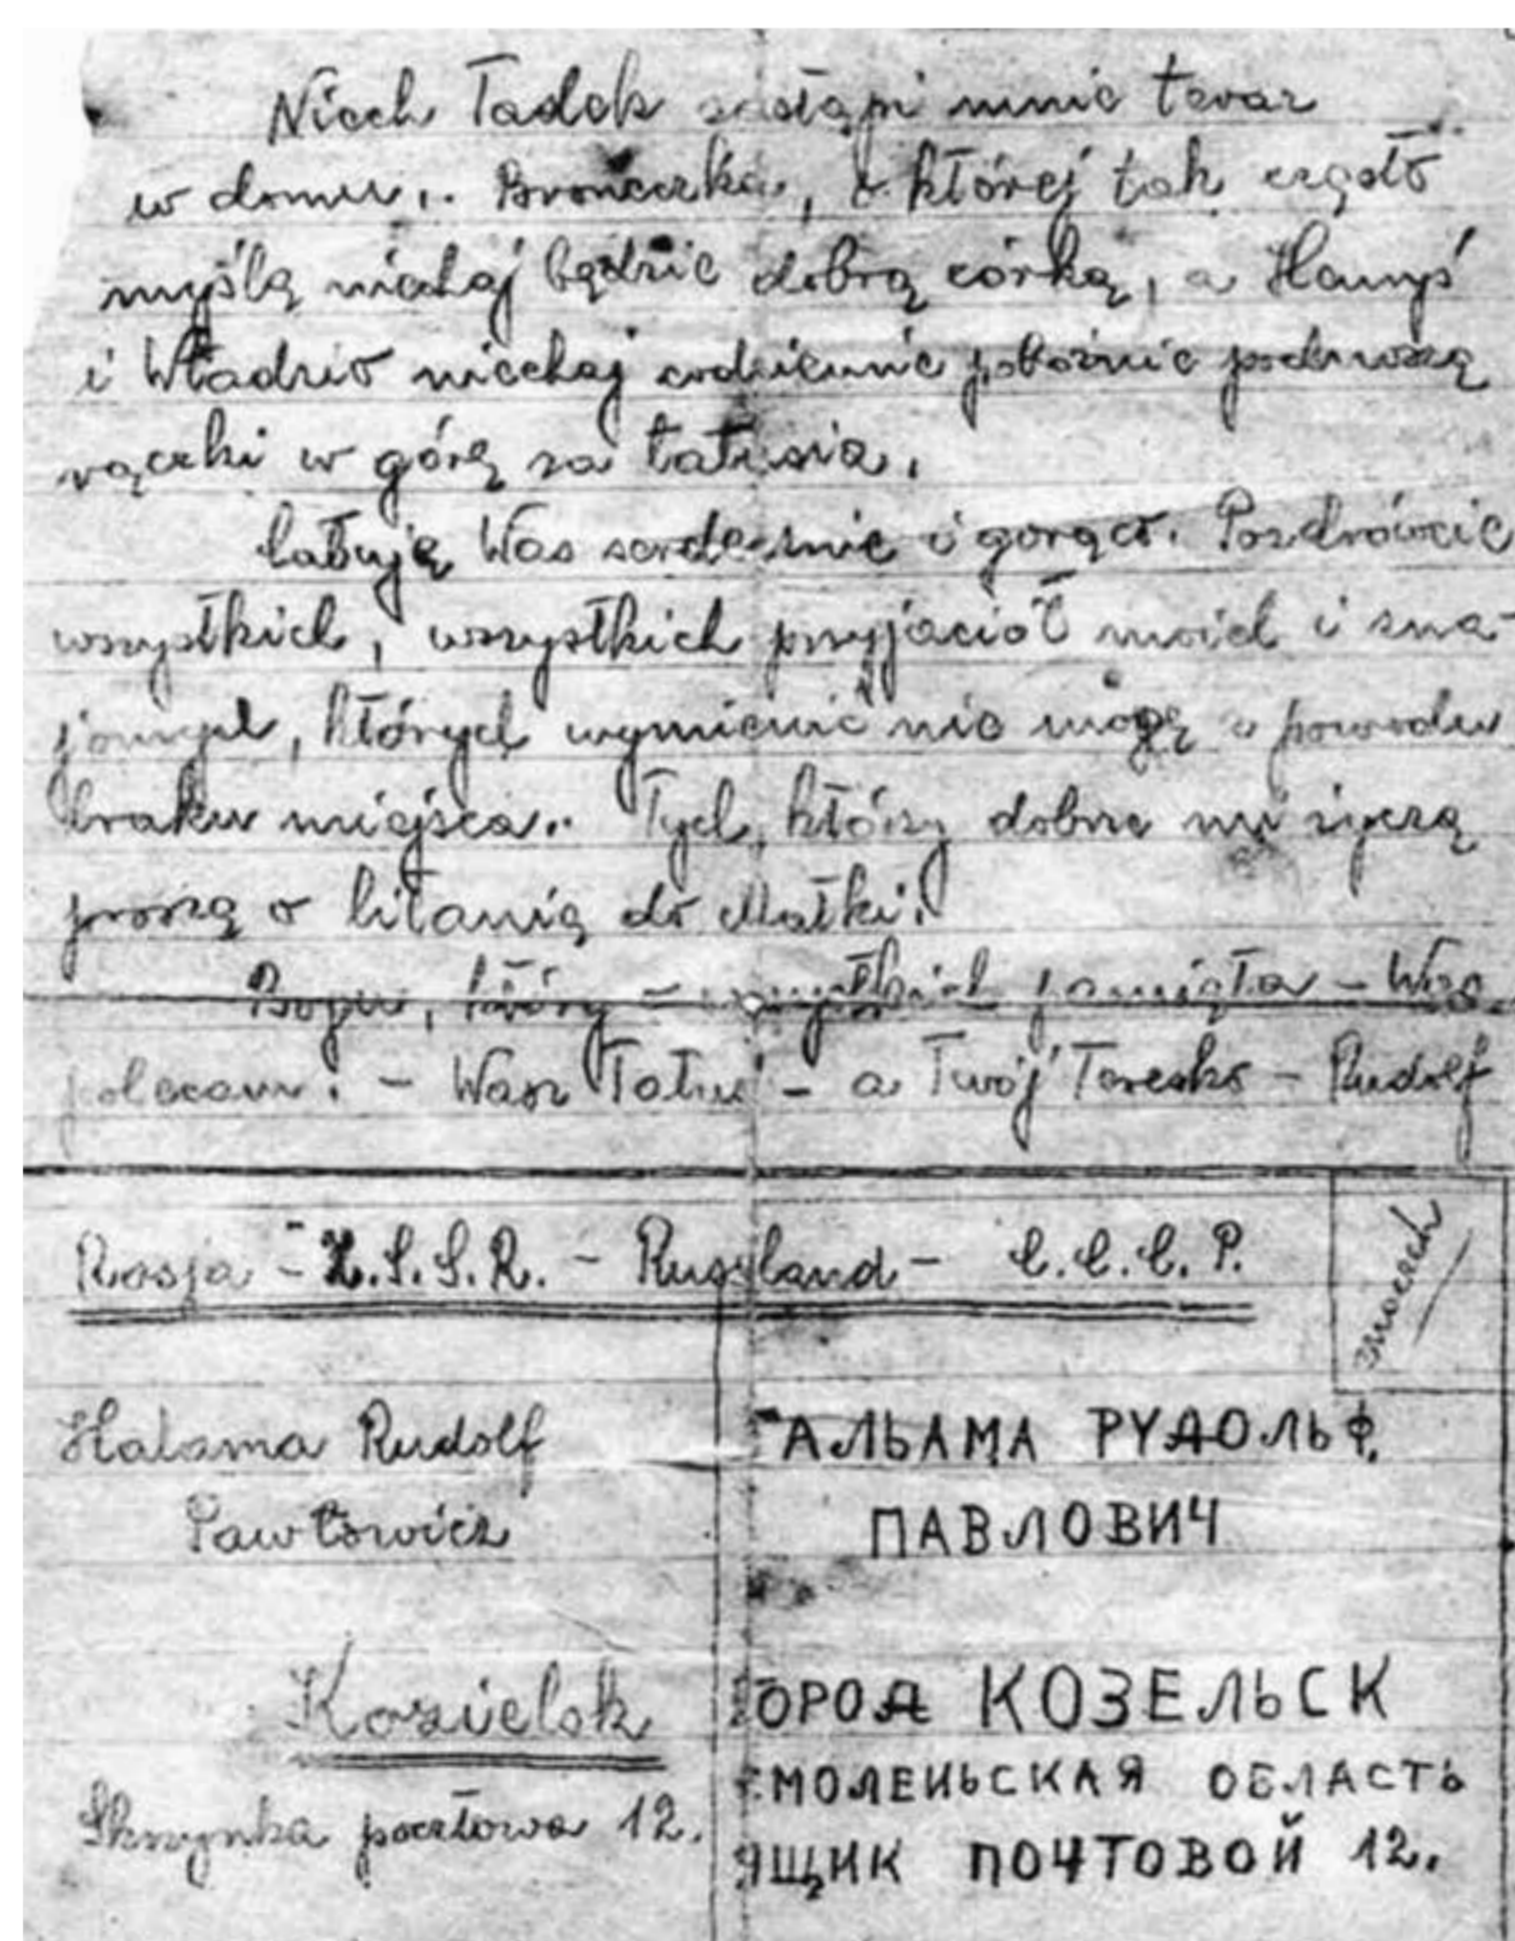 Niech Tadek zastąpi mnie teraz
w domu.. Broneczka, o której tak często
myślę niechaj będzie dobrą córką, a Hanyś
i Władzio niechaj codziennie pobożnie podnoszą
rączki w górę za tatusia.
Całuję Was serdecznie i gorąco. Pozdrówcie
wszystkich, wszystkich przyjaciół moich i zna-
jomych, których wymienić nie mogę z powodu
braku miejsca.. Tych, którzy dobrze mi życzą
proszę o litanię do Matki.
Bogu, który – wszystkich pamięta – Was
polecam. – Wasz Tatuś – a TwójTeresko – Rudolf
Rosja – Z.S.S.R. – Russland – C.C.C.P.
znaczek
Halama Rudolf
ГАЛЬАМА РУДОЛЬФ.
Pawłowicz
ПАВЛОВИЧ
Kozielsk
ГОРОД КОЗЕЛЬСК
СМОЛЕНЬСКАЯ ОБЛАСТЬ
Skrzynka pocztowa 12.
ЯЩИК ПОЧТОВОЙ 12.